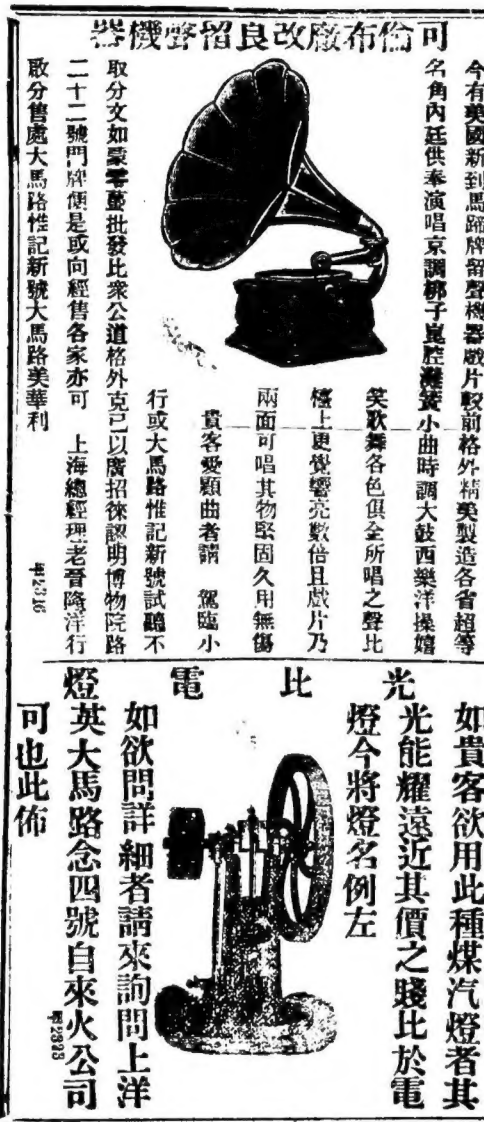 可倫布廠改良留聲機器
今有美國新到馬蹄牌留聲機器戲片較前格外精美製造各省超等
名角內廷供奉演唱京調梆子崑腔灘簧小曲時調大鼓西樂洋操嬉
笑歌舞各色俱全所唱之聲比
檯上更覺響亮數倍且戲片乃
兩面可唱其物堅固久用無傷
貴客愛顧曲者請 駕臨小
行或大馬路惟記新號試聽不
取分文如蒙零躉批發比衆公道格外克已以廣招徠認明博物院路
二十二號門牌便是或向經售各家亦可 上海總經理老晋隆洋行
敢分售處大馬路惟記新號大馬路美華利
甲2316
光比電燈
如貴客欲用此種煤汽燈者其
光能耀遠近其價之賤比於電
燈今將燈名例左
如欲問詳細者請來詢問上洋
英大馬路念四號自來火公司
可也此佈
甲2323